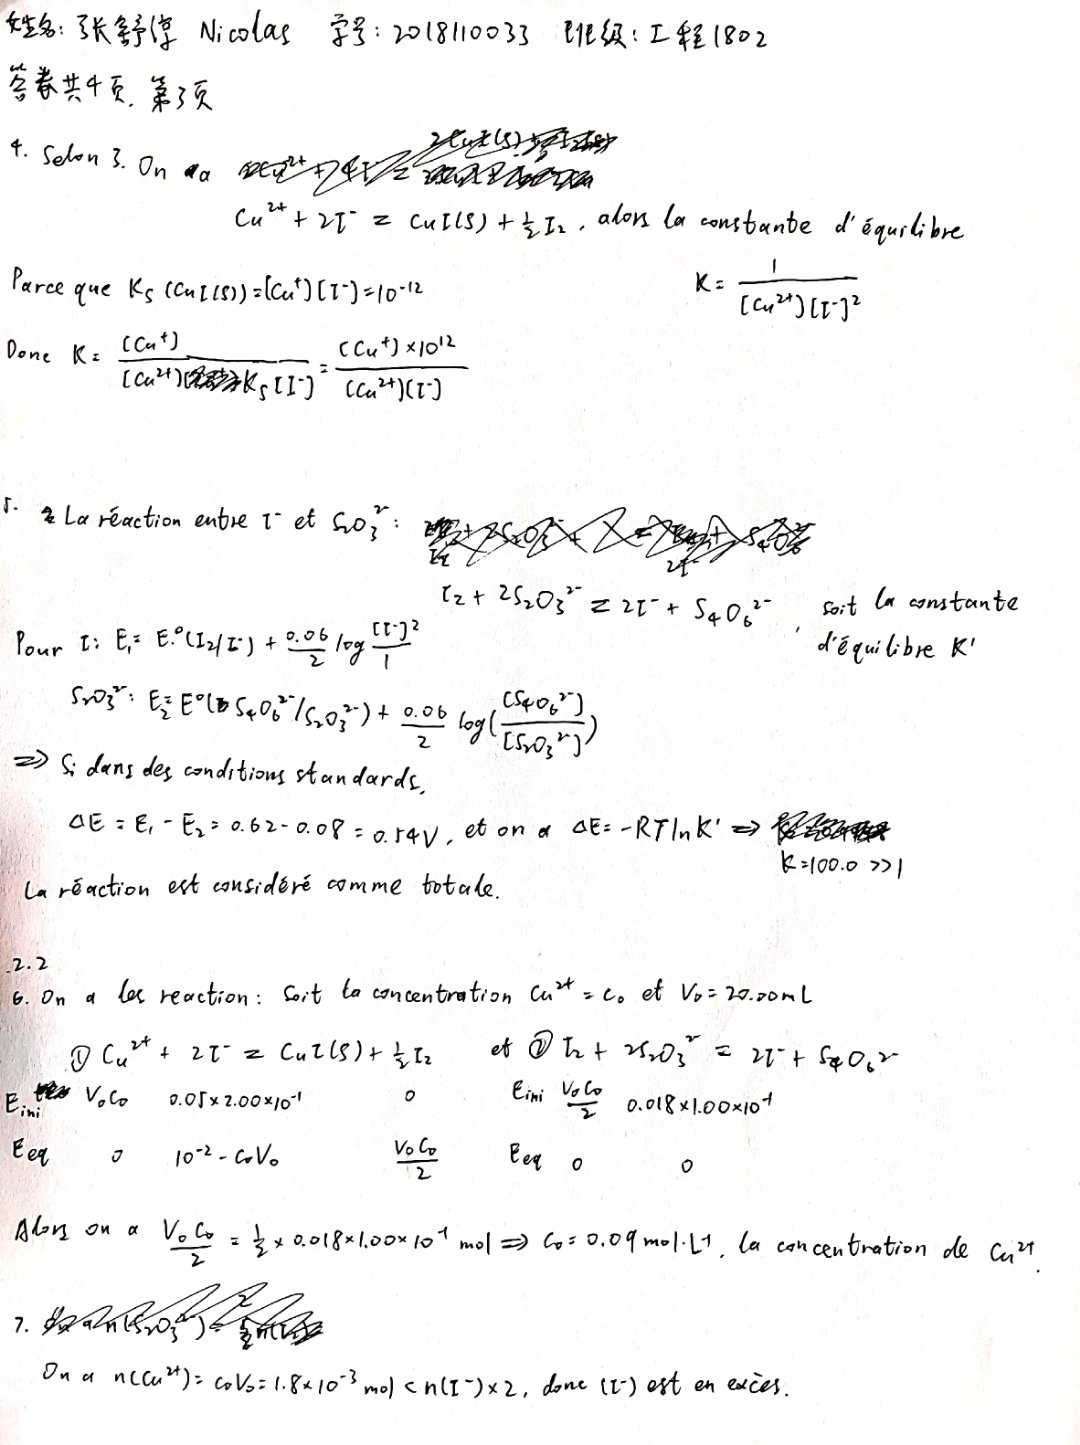 姓名: 张舒淳 Nicolas 学号: 2018110033 班级: 工程1802
答卷共4页. 第3页
4. Selon 3. On a
Cu²⁺ + 2I⁻ = CuI(s) + ½I₂, alors la constante d'équilibre
K = 1 / [Cu²⁺][I⁻]²
Parce que Ks (CuI(s)) = [Cu⁺][I⁻] = 10⁻¹²
Donc K = [Cu⁺] / [Cu²⁺] Ks [I⁻] = [Cu⁺] × 10¹² / [Cu²⁺][I⁻]
5. La réaction entre I⁻ et S₂O₃²⁻:
I₂ + 2S₂O₃²⁻ = 2I⁻ + S₄O₆²⁻, soit la constante
d'équilibre K'
Pour I: E₁ = E°(I₂/I⁻) + 0.06/2 log [I⁻]²/1
S₂O₃²⁻: E₂ = E°(S₄O₆²⁻/S₂O₃²⁻) + 0.06/2 log([S₄O₆²⁻]/[S₂O₃²⁻])
⇒ Si dans des conditions standards,
ΔE = E₁ - E₂ = 0.62 - 0.08 = 0.54V, et on a ΔE = -RT ln K' ⇒
K = 100.0 >> 1
La réaction est considéré comme totale.
2.2
6. On a les reaction: Soit la concentration Cu²⁺ = c₀ et V₀ = 20.00mL
① Cu²⁺ + 2I⁻ = CuI(s) + ½I₂ et ② I₂ + 2S₂O₃²⁻ = 2I⁻ + S₄O₆²⁻
Eini V₀C₀ 0.05×2.00×10⁻¹ 0 Eini V₀C₀/2 0.018×1.00×10⁻¹
Eeq 0 10⁻² - C₀V₀ V₀C₀/2 Eeq 0 0
Alors on a V₀C₀/2 = ½ × 0.018×1.00×10⁻¹ mol ⇒ C₀ = 0.09 mol·L⁻¹, la concentration de Cu²⁺.
7.
On a n(Cu²⁺) = c₀V₀ = 1.8×10⁻³ mol < n(I⁻)×2, donc (I⁻) est en excès.